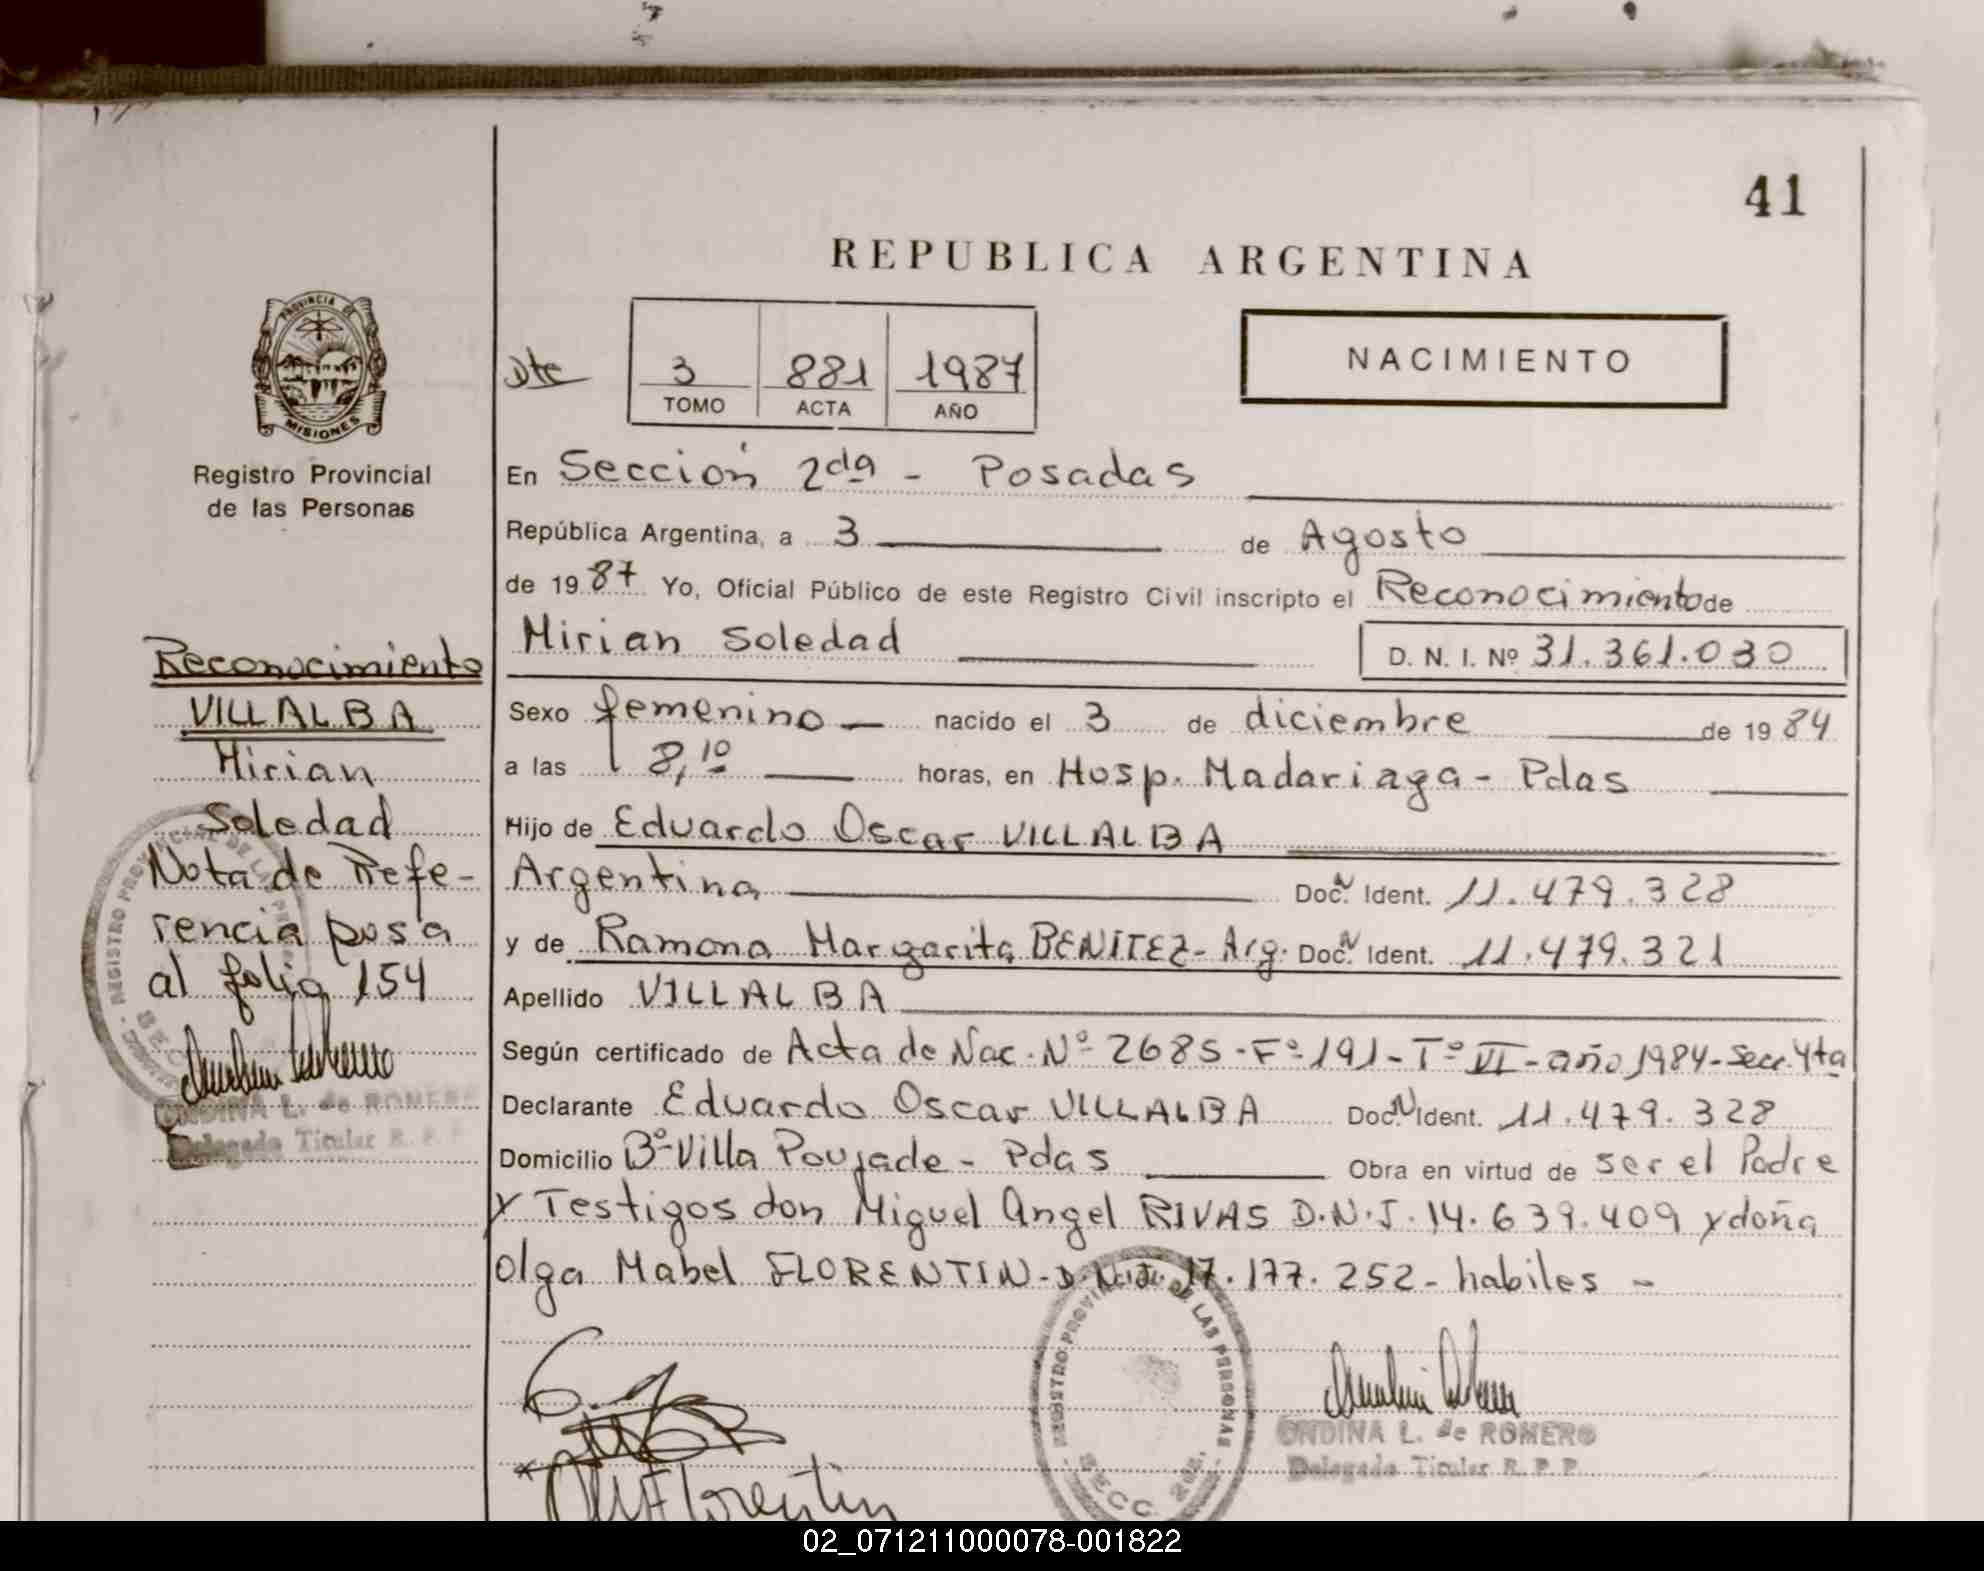 41
REPUBLICA ARGENTINA
Dte 3 881 1987
TOMO ACTA AÑO
NACIMIENTO
PROVINCIA DE
MISIONES
Registro Provincial
de las Personas
En Sección 2da - Posadas
República Argentina, a 3 de Agosto
de 1987 Yo, Oficial Público de este Registro Civil inscripto el Reconocimiento de
Mirian Soledad D. N. I. Nº 31.361.030
Sexo femenino — nacido el 3 de diciembre de 1984
a las 8,10 horas, en Hosp. Madariaga - Pdas
Hijo de Eduardo Oscar VILLALBA
Argentina Doc. N Ident. 11.479.328
y de Ramona Margarita BENITEZ - Arg. Doc. N Ident. 11.479.321
Apellido VILLALBA
Según certificado de Acta de Nac. Nº 2685 - Fº 191 - Tº VI - año 1984 - Secc. 4ta
Declarante Eduardo Oscar VILLALBA Doc. N Ident. 11.479.328
Domicilio Bº Villa Poujade - Pdas Obra en virtud de ser el Padre
y Testigos don Miguel Angel RIVAS D.N.I. 14.639.409 y doña
Olga Mabel FLORENTIN - D.N.I. 17.177.252 - habiles -
Reconocimiento
VILLALBA
Mirian
Soledad
Nota de Refe-
rencia pasa
al folio 154
ONDINA L. de ROMERO
Delegada Titular R. P. P.
REGISTRO PROVINCIAL DE LAS PERSONAS
SECC. 2da.
Florentin
ONDINA L. de ROMERO
Delegada Titular R. P. P.
02_071211000078-001822